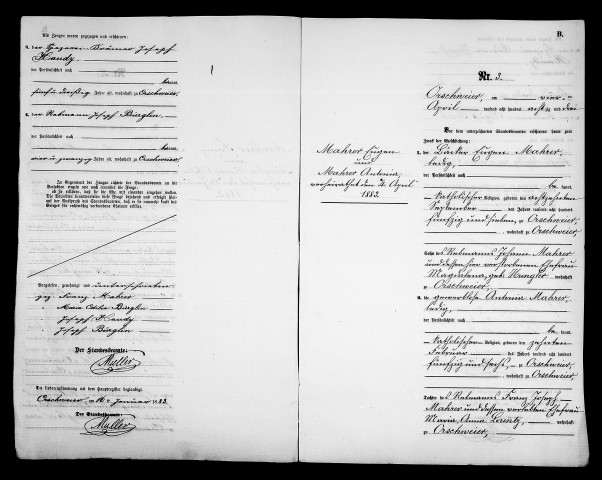 Als Zeugen waren zugezogen und erschienen:
3. der Joseph
Handy,
der Persönlichkeit nach
kannt,
fünfunddreißig Jahre alt, wohnhaft zu Orschweier,
4. der Rebmann Joseph Bürglin,
der Persönlichkeit nach
kannt,
vierundzwanzig Jahre alt, wohnhaft zu Orschweier.
In Gegenwart der Zeugen richtete der Standesbeamte an die
Verlobten einzeln und nach einander die Frage:
ob sie erklären, daß sie die Ehe mit einander eingehen wollen.
Die Verlobten beantworteten diese Frage bejahend und erfolgte hier-
auf der Ausspruch des Standesbeamten, daß er sie nunmehr kraft des
Gesetzes für rechtmäßig verbundene Eheleute erkläre.
Vorgelesen, genehmigt und unterschrieben
gez. Franz Mahrer
" Maria Bürglin
" Joseph Handy
" Joseph Bürglin
Der Standesbeamte:
Muller
Die Uebereinstimmung mit dem Hauptregister beglaubigt
Orschweier, am Januar 1883.
Der Standesbeamte:
Muller
Mahrer Eugen
und
Mahrer Antonia,
verheirathet den 4. April
1883.
B.
Nr. 3.
Orschweier, am vier
April tausend acht hundert achtzig und drei
Vor dem unterzeichneten Standesbeamten erschienen heute zum
Zweck der Eheschließung:
1. der Bäcker Eugen Mahrer,
ledig,
der Persönlichkeit nach
be kannt,
katholischer Religion, geboren den
September des Jahres tausend acht hundert
fünfzig und sieben, zu Orschweier,
wohnhaft zu Orschweier,
Sohn des Rebmanns Johann Mahrer
und dessen hier verstorbenen Ehefrau
Magdalena, geb. wohnhaft
zu Orschweier,
2. die gewerblose Antonia Mahrer,
ledig,
der Persönlichkeit nach
be kannt,
katholischer Religion, geboren den zehnten
Februar des Jahres tausend acht hundert
fünfzig und sechs, zu Orschweier,
wohnhaft zu Orschweier,
Tochter des Rebmanns Franz Joseph
Mahrer und dessen Ehefrau
Maria Anna Lorentz, wohnhaft
zu Orschweier,